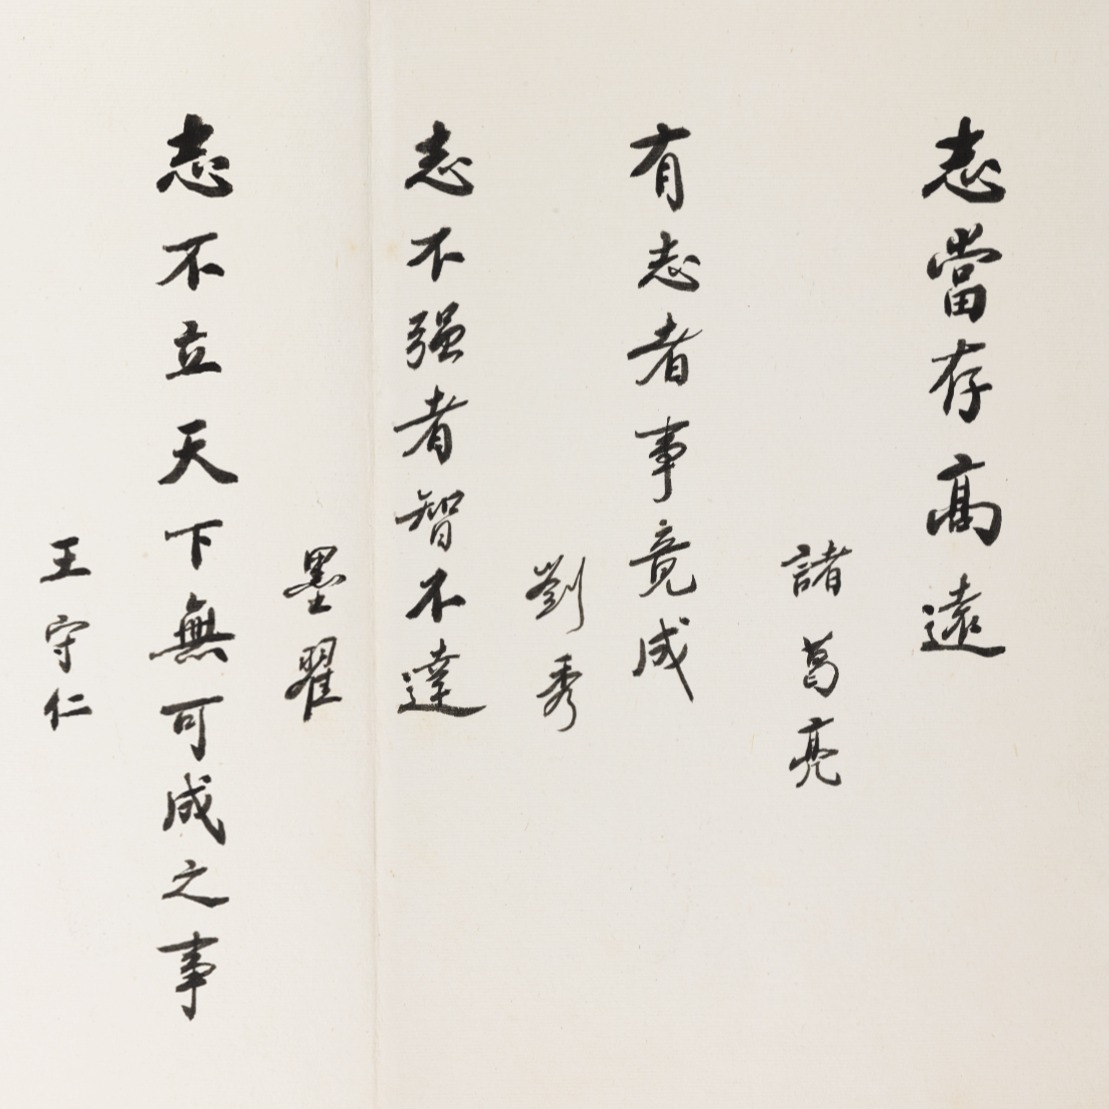 志當存高遠
諸葛亮
有志者事竟成
劉秀
志不强者智不達
墨翟
志不立天下無可成之事
王守仁